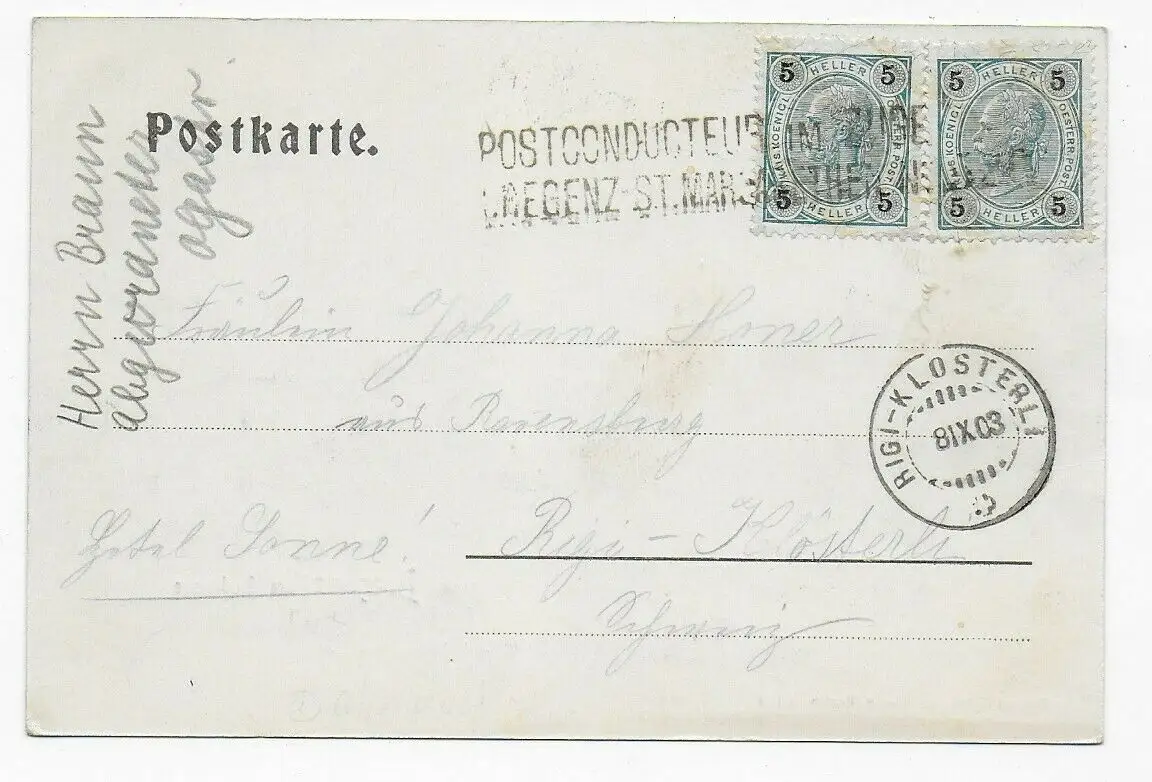 Postkarte.
POSTCONDUCTEUR IM
BREGENZ-ST.MARG
5 HELLER 5
KAIS.KOENIGL. OESTERR.POST
5 HELLER 5
5 HELLER 5
KAIS.KOENIGL. OESTERR.POST
5 HELLER 5
Herrn Braun
Abgeordneter
Fräulein Johanna Honer
aus Ravensburg
RIGI-KLÖSTERLI
8 IX 03
Hotel Sonne!
Rigi - Klösterli
Schweiz